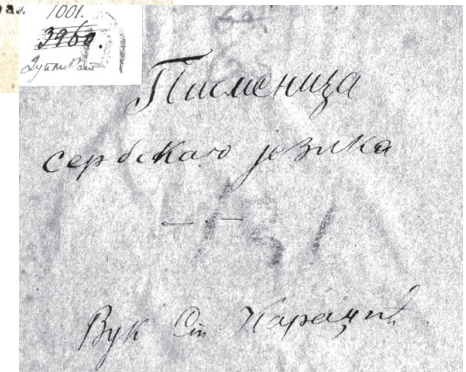 1001.
3960.
Дупликат
Писменица
сербскаго језика
Вук Ст Караџић